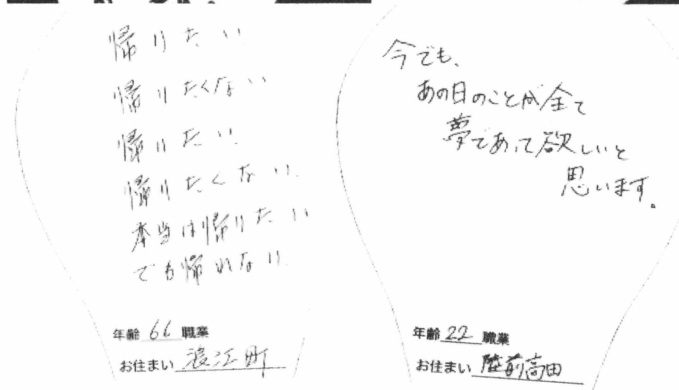 帰りたい
帰りたくない
帰りたい
帰りたくない
本当は帰りたい
でも帰れない
年齢 66 職業
お住まい 浪江町
今でも、
あの日のことが全て
夢であって欲しいと
思います。
年齢 22 職業
お住まい 陸前高田